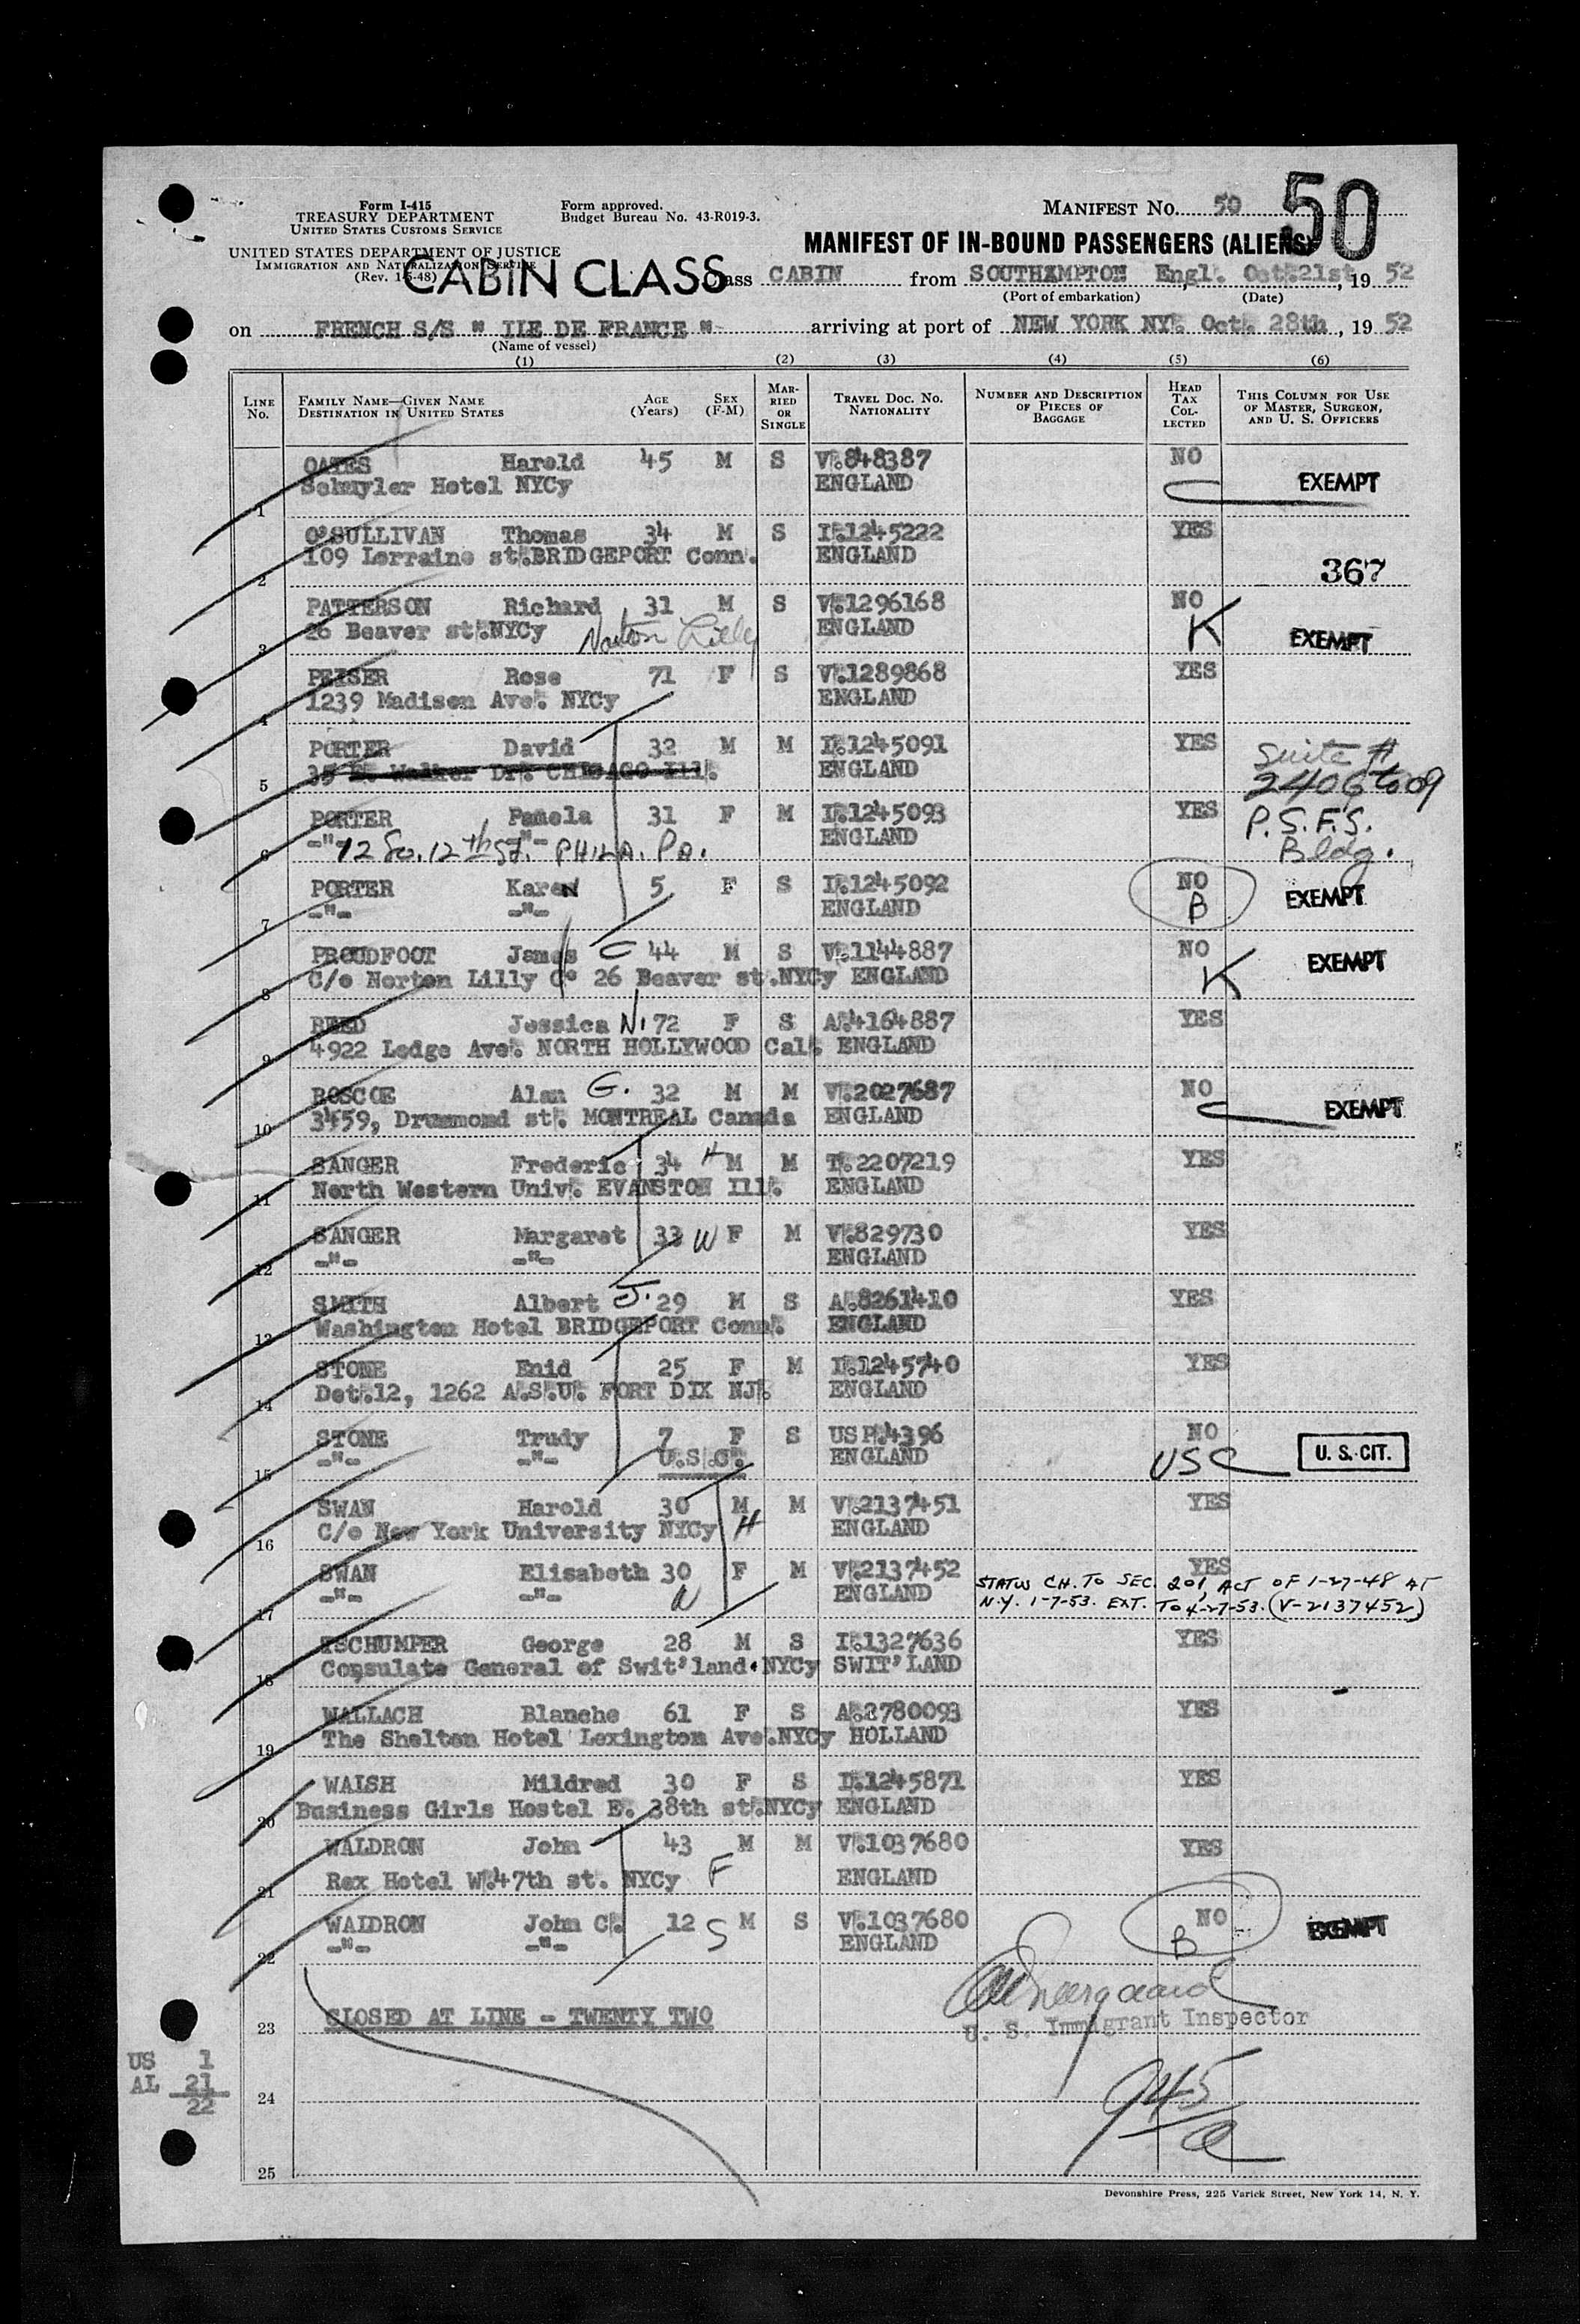 Form I-415
TREASURY DEPARTMENT
UNITED STATES CUSTOMS SERVICE
Form approved.
Budget Bureau No. 43-R019-3.
MANIFEST NO. 50
50
UNITED STATES DEPARTMENT OF JUSTICE
IMMIGRATION AND NATURALIZATION SERVICE
MANIFEST OF IN-BOUND PASSENGERS (ALIENS)
CABIN CLASS
Class CABIN from SOUTHAMPTON Engl. Oct.21st, 19 52
(Port of embarkation) (Date)
on FRENCH S/S " ILE DE FRANCE " arriving at port of NEW YORK NY. Oct. 28th, 19 52
(Name of vessel)
(1) (2) (3) (4) (5) (6)
LINE No. FAMILY NAME—GIVEN NAME DESTINATION IN UNITED STATES AGE (Years) SEX (F-M) MARRIED OR SINGLE TRAVEL DOC. NO. NATIONALITY NUMBER AND DESCRIPTION OF PIECES OF BAGGAGE HEAD TAX COLLECTED THIS COLUMN FOR USE OF MASTER, SURGEON, AND U. S. OFFICERS
OATES Harold 45 M S V.848387 NO
1 Schuyler Hotel NYCy ENGLAND EXEMPT
O'SULLIVAN Thomas 34 M S I.1245222 YES
2 109 Lorraine st.BRIDGEPORT Conn. ENGLAND 367
PATTERSON Richard 31 M S V.1296168 NO
3 26 Beaver st.NYCy Norton Lilly ENGLAND K EXEMPT
PEISER Rose 71 F S V.1289868 YES
4 1239 Madison Ave. NYCy ENGLAND
PORTER David 32 M M I.1245091 YES Suite #
5 35 E. Walker Dr. CHICAGO Ill. ENGLAND 2406 to 09
PORTER Pamela 31 F M I.1245093 YES P.S.F.S.
6 -"- 12 So. 12th St. -"- PHILA. Pa. ENGLAND Bldg.
PORTER Karen 5 F S I.1245092 NO EXEMPT
7 -"- -"- ENGLAND B
PROUDFOOT James C 44 M S V.1144887 NO EXEMPT
8 C/o Norton Lilly Co 26 Beaver st.NYCy ENGLAND K
REED Jessica N. 72 F S A.4164887 YES
9 4922 Ledge Ave. NORTH HOLLYWOOD Cal. ENGLAND
ROSCOE Alan G. 32 M M V.2027687 NO
10 3459, Drummond st. MONTREAL Canada ENGLAND EXEMPT
SANGER Frederic 34 H M M T.2207219 YES
11 North Western Univ. EVANSTON Ill. ENGLAND
SANGER Margaret 33 W F M V.829730 YES
12 -"- -"- ENGLAND
SMITH Albert J. 29 M S A.8261410 YES
13 Washington Hotel BRIDGEPORT Conn. ENGLAND
STONE Enid 25 F M I.1245740 YES
14 Det.12, 1262 A.S.U. FORT DIX NJ. ENGLAND
STONE Trudy 7 F S USP.4396 NO
15 -"- -"- U.S.C. ENGLAND USC U. S. CIT.
SWAN Harold 30 M M V.2137451 YES
16 C/o New York University NYCy H ENGLAND
SWAN Elisabeth 30 F M V.2137452 YES
17 -"- -"- W ENGLAND STATUS CH. TO SEC. 201, ACT OF 1-27-48 AT
N.Y. 1-7-53. EXT. TO 4-27-53. (V-2137452)
TSCHUMPER George 28 M S I.1327636 YES
18 Consulate General of Swit'land.NYCy SWIT'LAND
WALLACH Blanche 61 F S A.2780093 YES
19 The Shelton Hotel Lexington Ave.NYCy HOLLAND
WALSH Mildred 30 F S I.1245871 YES
20 Business Girls Hostel E. 38th st.NYCy ENGLAND
WALDRON John 43 M M V.1037680 YES
21 Rex Hotel W.47th st. NYCy F ENGLAND
WALDRON John C. 12 S M S V.1037680 NO EXEMPT
22 -"- -"- ENGLAND B
23 CLOSED AT LINE - TWENTY TWO
U. S. Immigrant Inspector
US 1
AL 21
22
24
945
25
Devonshire Press, 225 Varick Street, New York 14, N. Y.